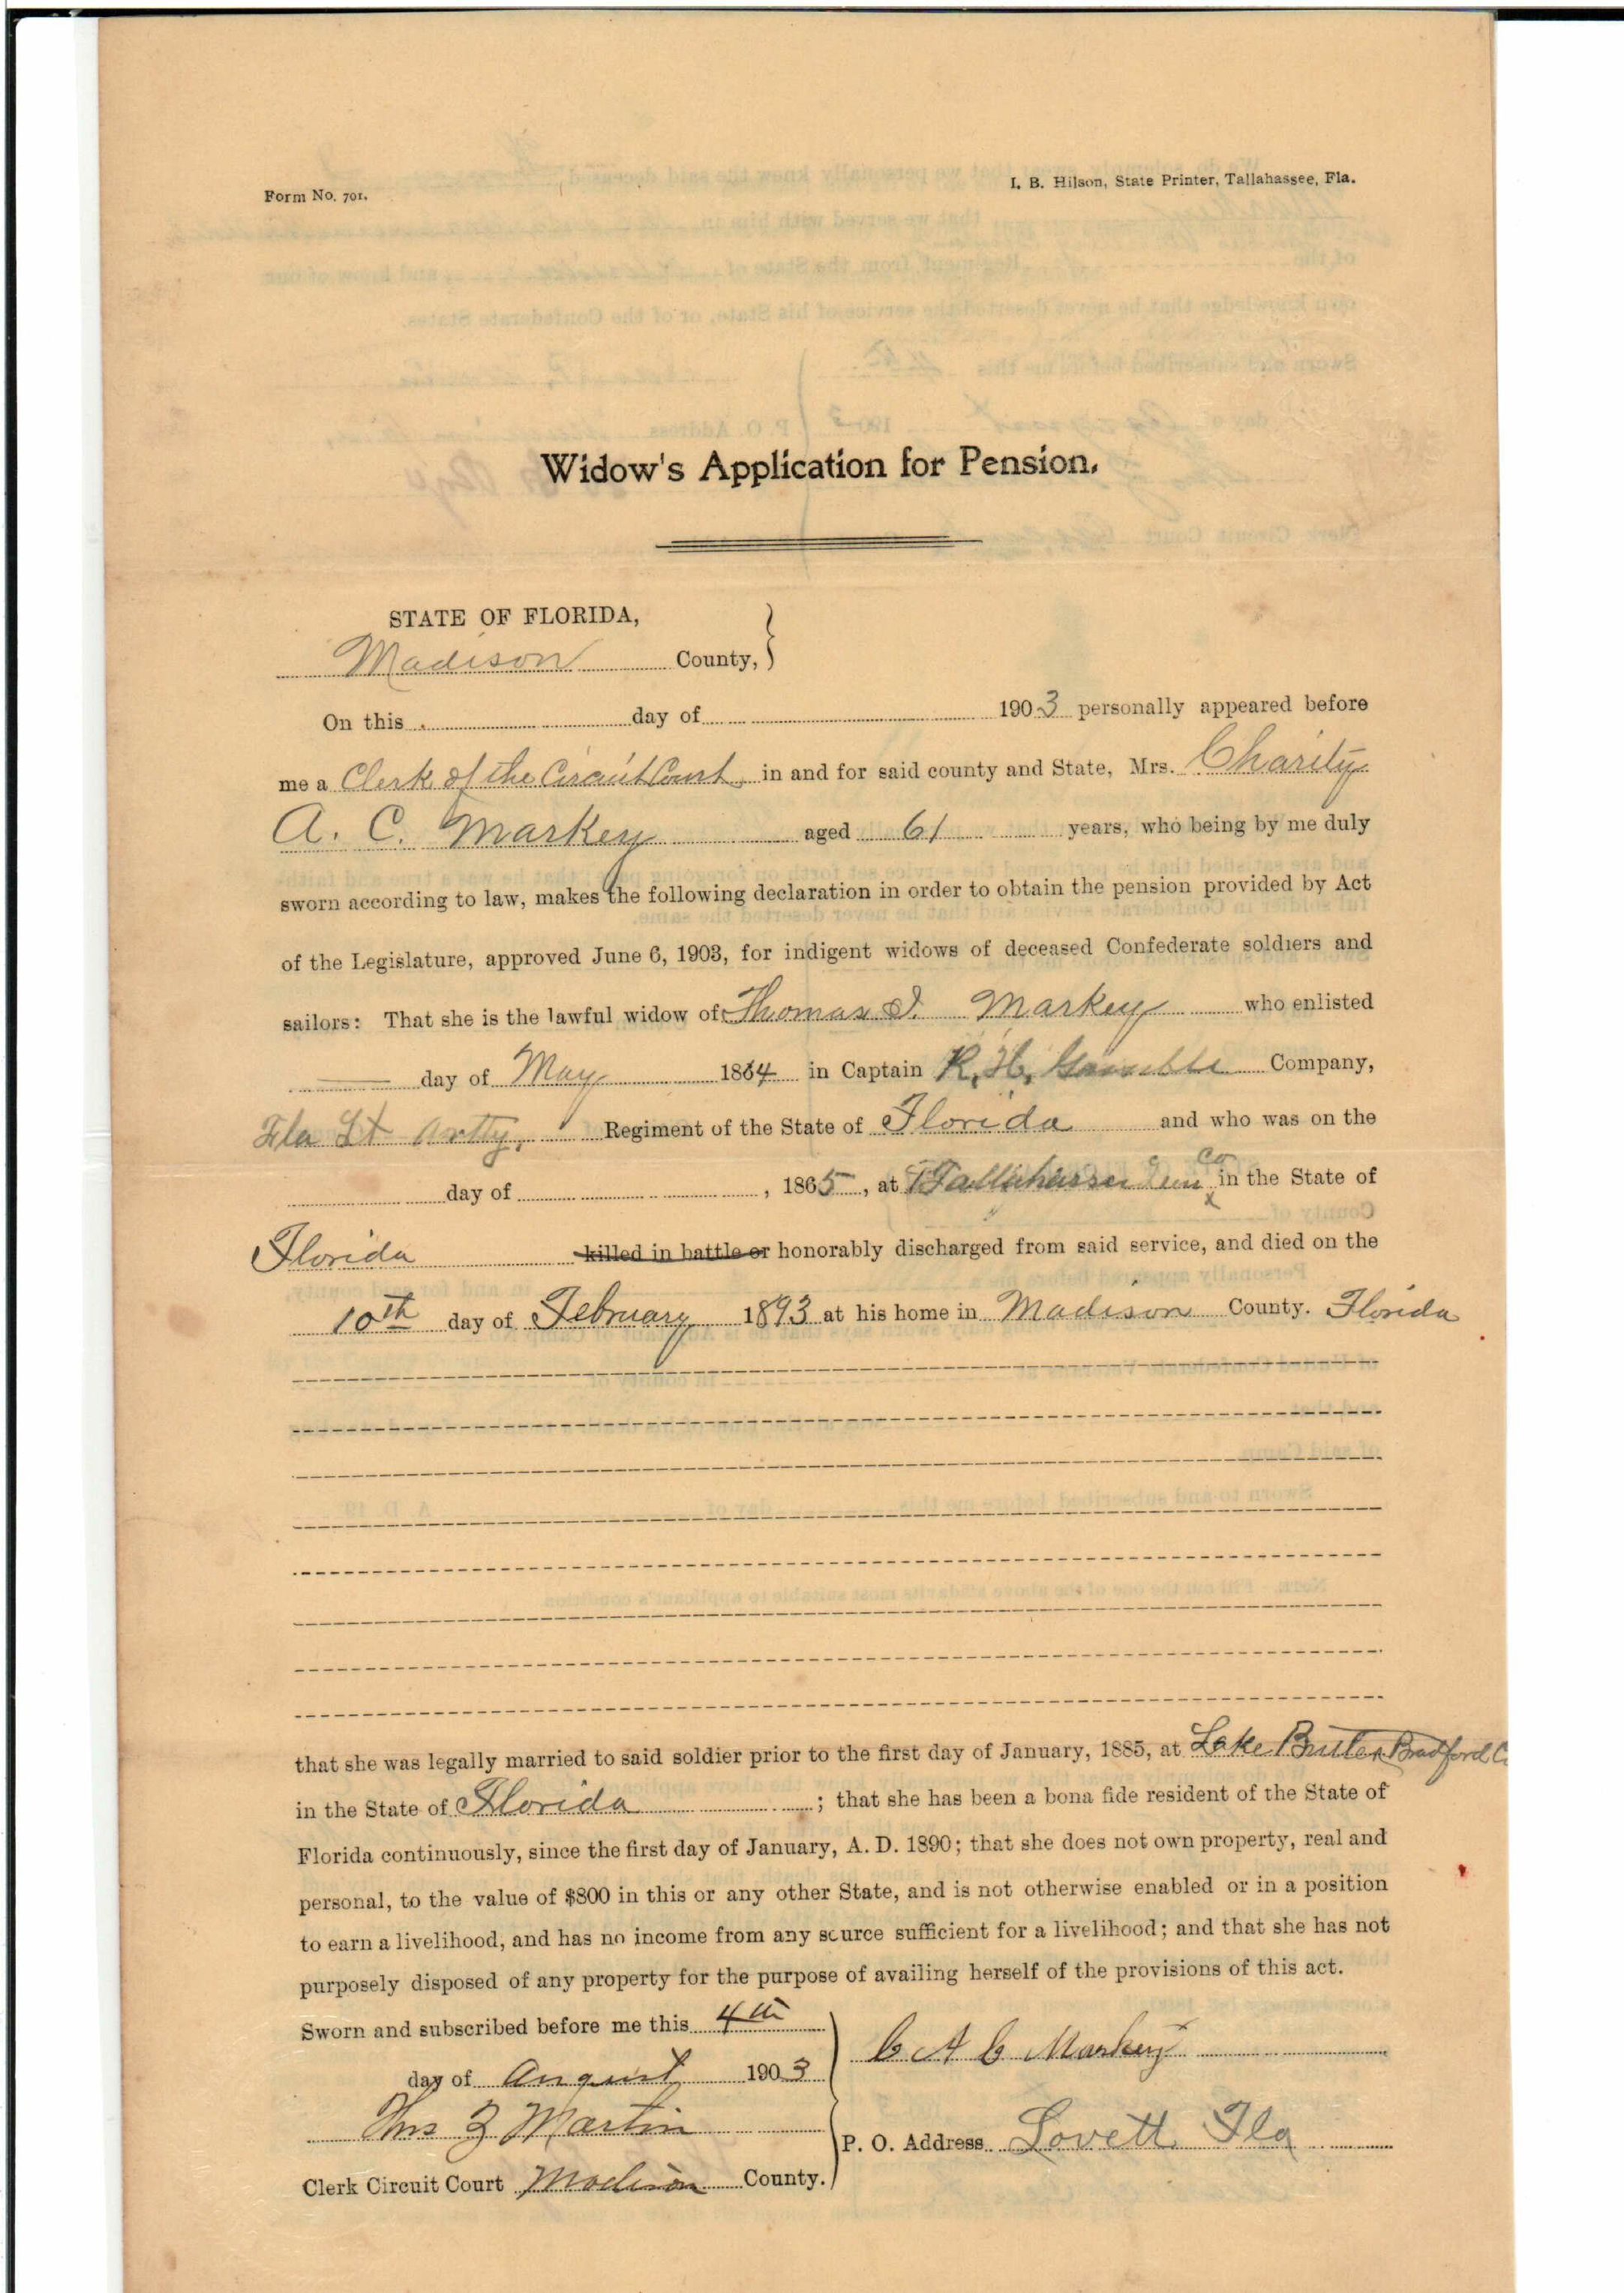 Form No. 701.
I. B. Hilson, State Printer, Tallahassee, Fla.
Widow's Application for Pension.
STATE OF FLORIDA,
Madison County,
On this day of 1903 personally appeared before
me a Clerk of the Circuit Court in and for said county and State, Mrs. Charity
A. C. Markey aged 61 years, who being by me duly
sworn according to law, makes the following declaration in order to obtain the pension provided by Act
of the Legislature, approved June 6, 1903, for indigent widows of deceased Confederate soldiers and
sailors: That she is the lawful widow of Thomas I. Markey who enlisted
day of May 1864 in Captain R. H. Gamble Company,
Fla Lt Artty. Regiment of the State of Florida and who was on the
day of , 1865, at Tallahassee Co in the State of
Florida killed in battle or honorably discharged from said service, and died on the
10th day of February 1893 at his home in Madison County. Florida
that she was legally married to said soldier prior to the first day of January, 1885, at Lake Butler Bradford C
in the State of Florida ; that she has been a bona fide resident of the State of
Florida continuously, since the first day of January, A. D. 1890; that she does not own property, real and
personal, to the value of $800 in this or any other State, and is not otherwise enabled or in a position
to earn a livelihood, and has no income from any source sufficient for a livelihood; and that she has not
purposely disposed of any property for the purpose of availing herself of the provisions of this act.
Sworn and subscribed before me this 4th
C A C Markey
day of August 1903
Thos Z Martin
P. O. Address Lovett Fla
Clerk Circuit Court Madison County.